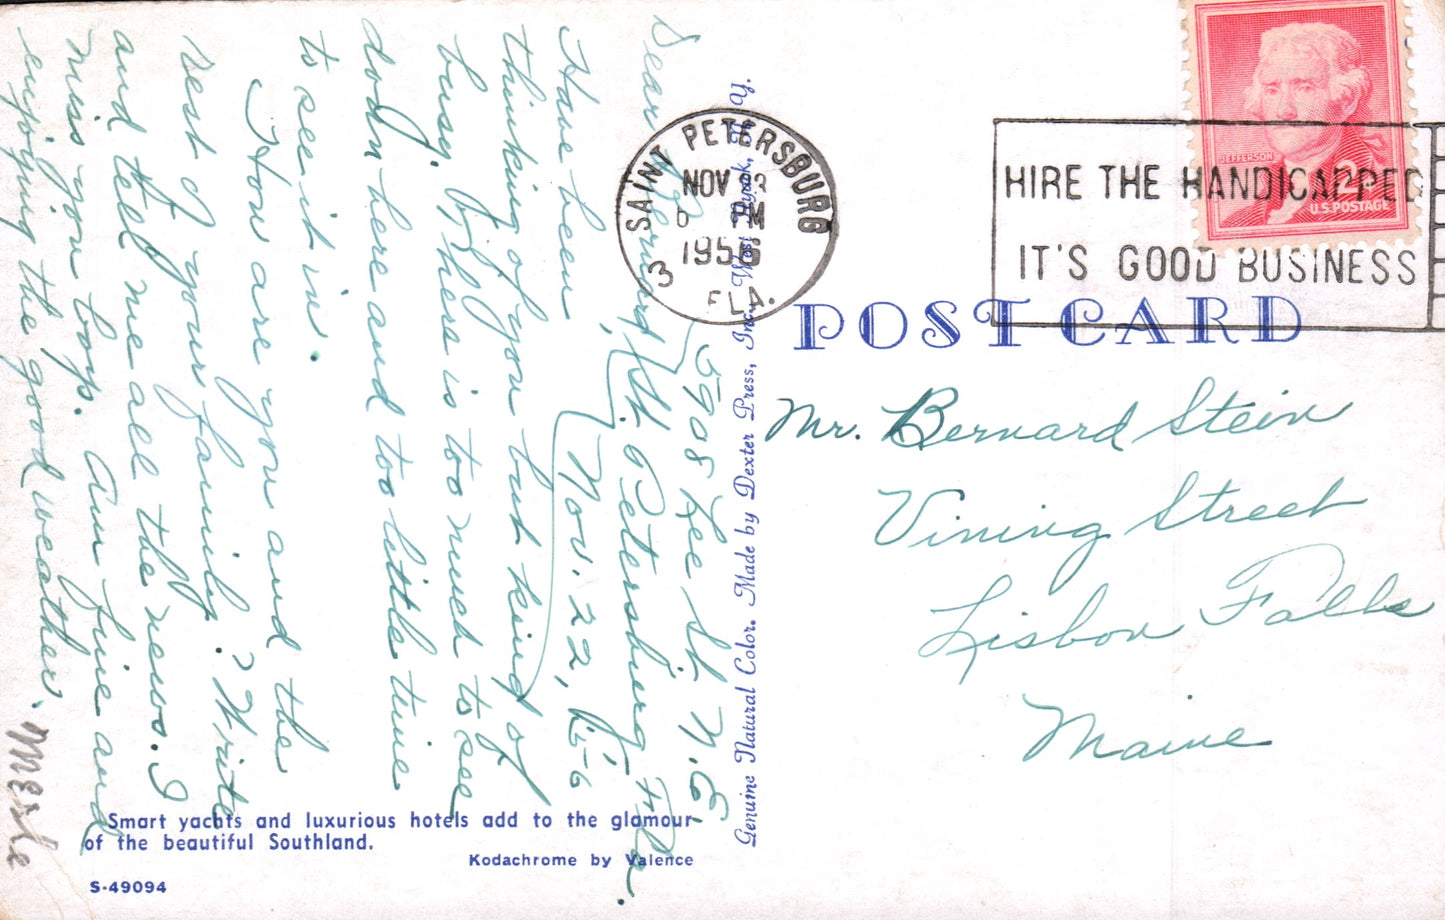 5908 Lee St. N.E.
St. Petersburg, Fla.
Nov. 22, 1956
Dear Bernard,
Have been
thinking of you but kind of
busy. There is too much to see
down here and too little time
to see it in.
How are you and the
rest of your family? Write
and tell me all the news. I
miss you boys. Am fine and
enjoying the good weather.
Merle
Smart yachts and luxurious hotels add to the glamour
of the beautiful Southland.
Kodachrome by Valence
S-49094
Genuine Natural Color. Made by Dexter Press, Inc., West Nyack, N. Y.
SAINT PETERSBURG
NOV
PM
1956
3 FLA.
HIRE THE HANDICAPPED
IT'S GOOD BUSINESS
JEFFERSON
2¢
U.S. POSTAGE
POST CARD
Mr. Bernard Stein
Vining Street
Lisbon Falls
Maine